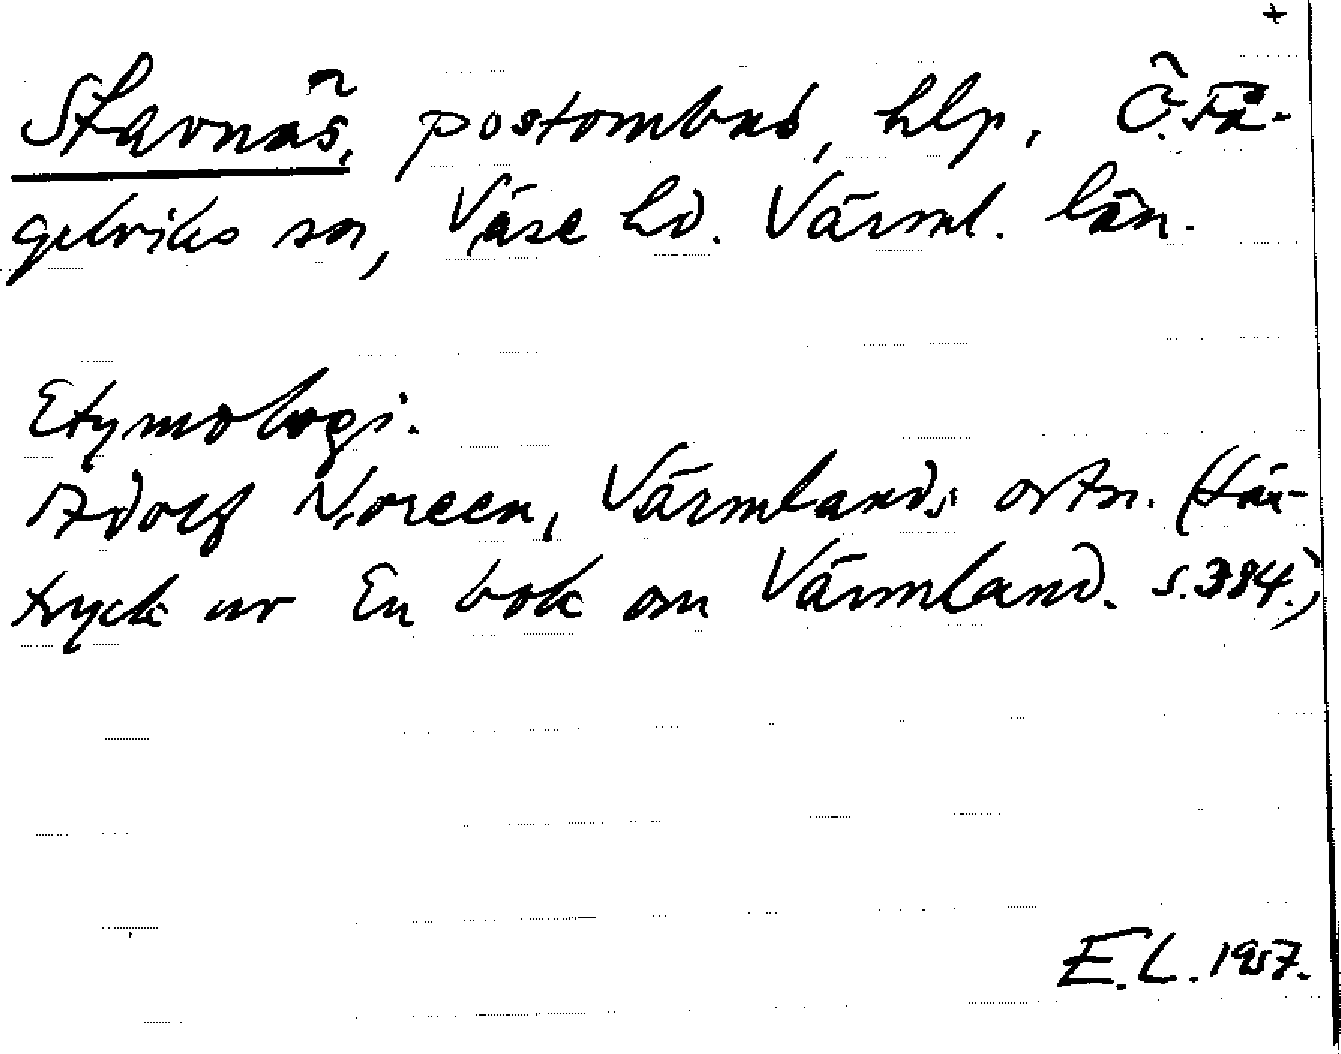 +
Stavnäs, postombud, hlp., Ö. Få-
gelviks sn, Väse hd. Värml. län.
Etymologi.
Adolf Noreen, Värmlands ortn. (sär-
tryck ur En bok om Värmland. s. 384.)
E.L. 1957.